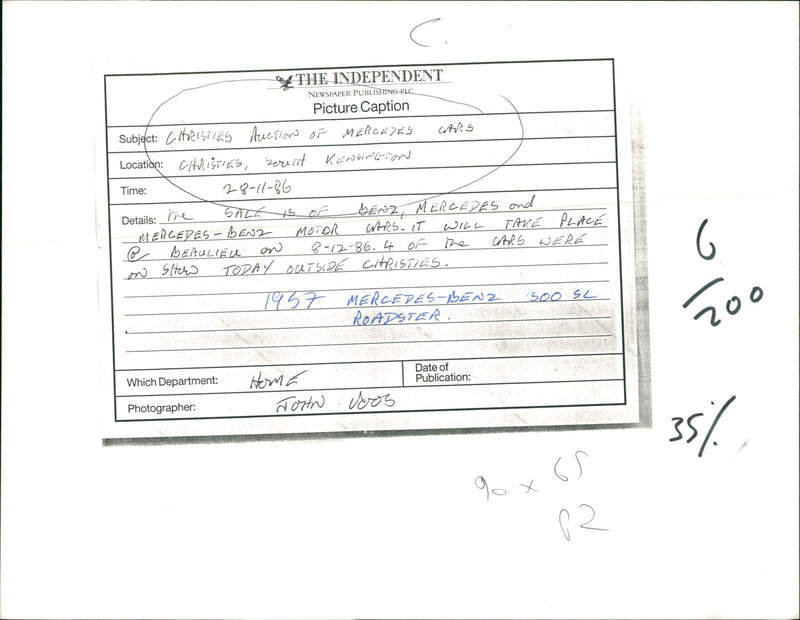 C.
THE INDEPENDENT
NEWSPAPER PUBLISHING PLC
Picture Caption
Subject: CHRISTIES AUCTION OF MERCEDES CARS
Location: CHRISTIES, SOUTH KENSINGTON
Time: 28-11-86
Details: The SALE IS OF BENZ, MERCEDES and
MERCEDES-BENZ MOTOR CARS. IT WILL TAKE PLACE
@ BEAULIEU ON 8-12-86. 4 OF The CARS WERE
ON SHOW TODAY OUTSIDE CHRISTIES.
1957 MERCEDES-BENZ 300 SL
ROADSTER.
Which Department: HOME
Date of
Publication:
Photographer: JOHN VOOS
6
/200
35%
90 x 65
P2